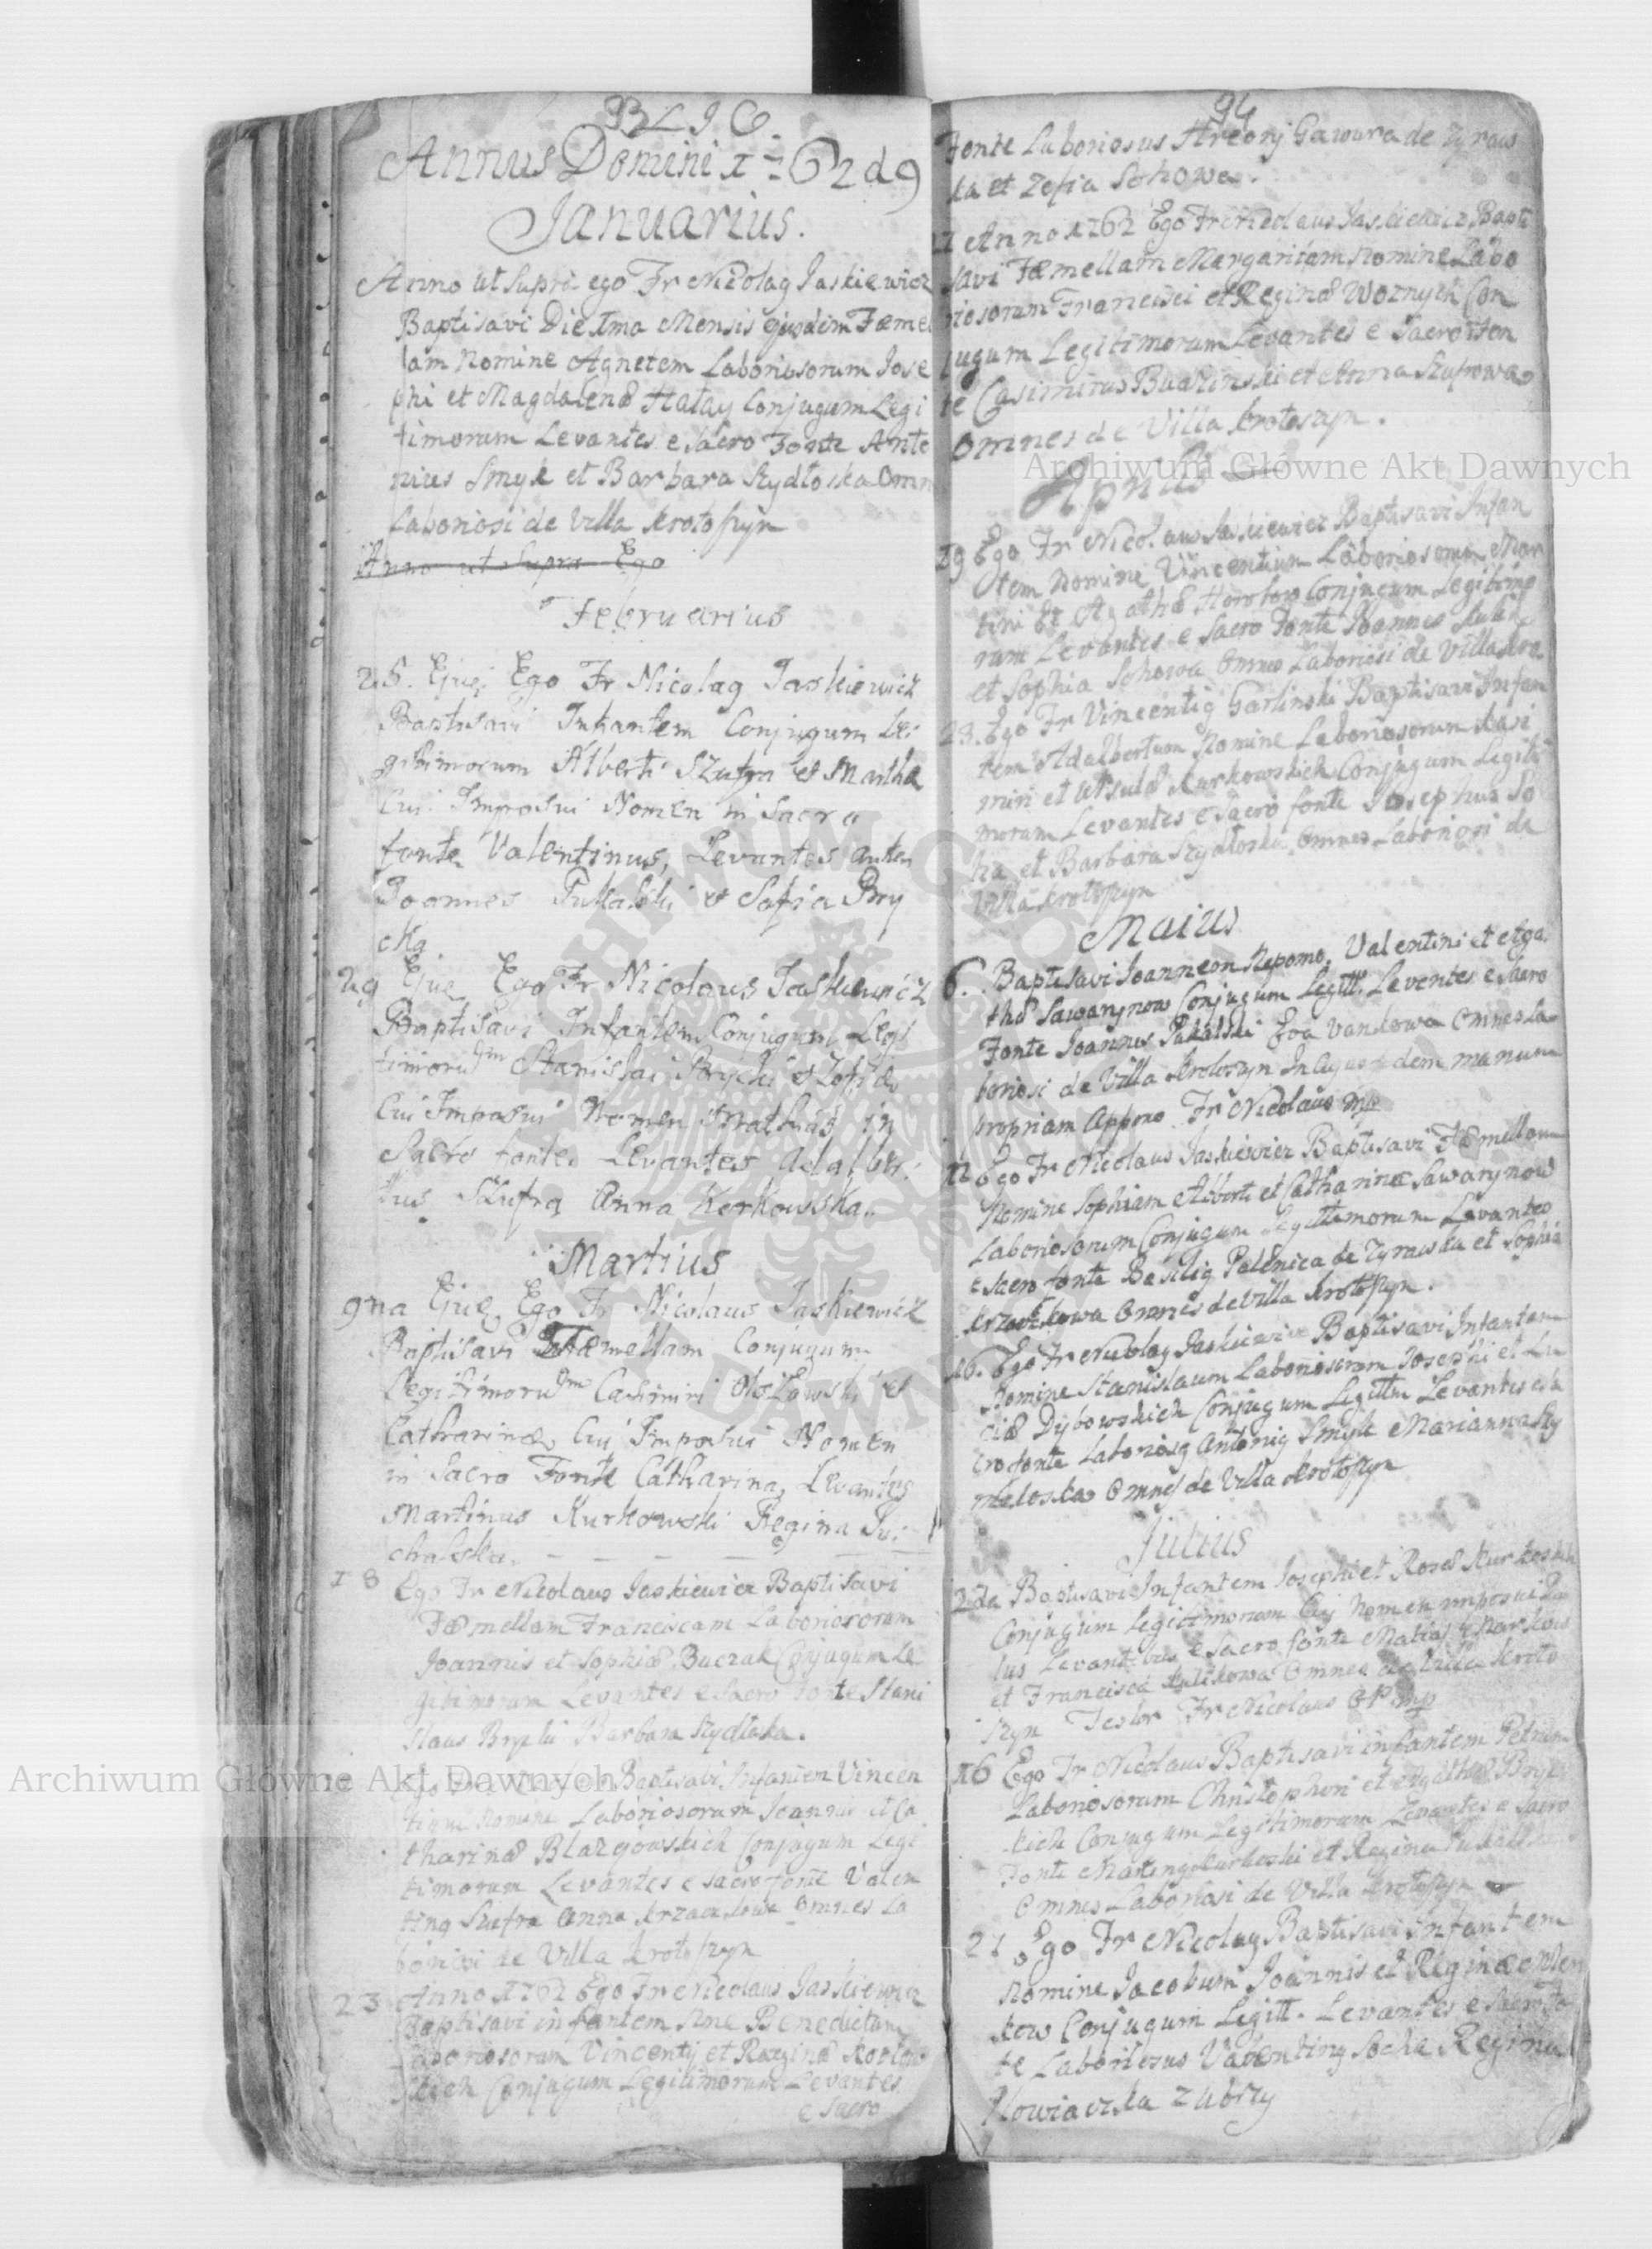 Annus Domini 1762
Januarius.
Anno ut Supra ego Fr Nicolag Jaskiewicz
Baptisavi Die Ima Mensis ejusdem Fæme
lam Nomine Agnetem Laboriosorum Jose
phi et Magdalenæ Hatay Conjugum Legi
timorum Levantes e Sacro Fonte Anto
nius Smyk et Barbara Szydłoska Omn
Laboriosi de Villa Krotoszyn
Anno ut Supra Ego
Februarius
25. Ejus Ego Fr Nicolag Jaskiewicz
Baptisavi Infantem Conjugum Le:
gitimorum Alberti Szufra et Martha
Cui Imposui Nomen in Sacro
fonte Valentinus, Levantes autem
Joannes Pukalski et Sofia Bry
cka
29 Ejus Ego Fr Nicolaus Jaskiewicz
Baptisavi Infantem Conjugum Legi
timoru Stanislai Brycki et Zofiæ
Cui Imposui Nomen Mathias in
Sacro fonte Levantes Adalber:
tus Szufra Anna Korkowska.
Martius
9na Ejus Ego Fr Nicolaus Jaskiewicz
Baptisavi Fæmellam Conjugum
Legitimoru Casimiri et
Catharinæ, Cui Imposui Nomen
in Sacro Fonte Catharina, Levantes
Martinus Kurkowski Regina Pu:
chalska.
18 Ego Fr Nicolaus Jaskiewicz Baptisavi
Fæmellam Franciscam Laboriosorum
Joannis et Sophiæ Buczak Conjugum Le
gitimorum Levantes e Sacro Fonte Stani
slaus Brycki Barbara Szydłoska.
Ego Baptisavi Infantem Vincen
tium Nomine Laboriosorum Joannis et Ca
tharinæ Blazgowskich Conjugum Legi
timorum Levantes e Sacro fonte Valen
ting Szufra Anna Krzaczkowa Omnes La
boriosi de Villa Krotoszyn
23 Anno 1762 Ego Fr Nicolaus Jaskiewicz
Baptisavi infantem Nne Benedictum
Laboriosorum Vincentij et Reginæ
Conjugum Legitimorum Levantes
e Sacro
94
Fonte Laboriosus Hreory Gawura de Zyraw
ka et Zofia Sohowa.
Anno 1762 Ego Fr Nicolaus Jaskiewicz Bapti
savi Fæmellam Margaritam Nomine Labo
riosorum Francisci et Reginæ Woznych Con
jugum Legitimorum Levantes e Sacro Fon
te Casimirus Budzinski et Anna Szufrowa
Omnes de Villa Krotoszyn.
Aprilis
19 Ego Fr Nicolaus Jaskiewicz Baptisavi Infan
tem Nomine Vincentium Laboriosorum Mar
tini Et Agathæ Conjugum Legitimo
rum Levantes e Sacro Fonte Joannes
et Sophia Sohowa Omnes Laboriosi de Villa Kro
23. Ego Fr Vincentig Garlinski Baptisavi Infan
tem Adalbertum Nomine Laboriosorum Kasi
miri et Ursulæ Kurkowskich Conjugum Legiti
morum Levantes e Sacro fonte Josephus So
ha et Barbara Szydłoska Omnes Laboriosi de
Villa Krotoszyn
Maius
6. Baptisavi Joannem Nepomo. Valentini et Aga
thæ Sawarynow Conjugum Legitt. Levantes e Sacro
Fonte Joannes Pukalski Eva Vankowa Omnes La
boriosi de Villa Krotoszyn In manum
propriam Appono Fr Nicolaus mp
12 Ego Fr Nicolaus Jaskiewicz Baptisavi Fæmellam
Nomine Sophiam Alberti et Catharinæ Sawarynow
Laboriosorum Conjugum Legittimorum Levantes
e Sacro fonte Basilig Palenica de Zyrawka et Sophia
Krzaczkowa Omnes de Villa Krotoszyn.
16. Ego Fr Nicolag Jaskiewicz Baptisavi Infantem
Nomine Stanislaum Laboriosorum Josephi et Lu
ciæ Dybowskich Conjugum Legittm Levantes e Sa
cro fonte Laboriosg Antonig Smyk Marianna Szy
Omnes de Villa Krotoszyn
Julius
2da Baptisavi Infantem Josephi et Rosæ
Conjugum Legitimorum Cuj Nomen imposui
Levantibus e Sacro fonte Matias
et Francisca Kulikowa Omnes de Villa Kroto
szyn Testor Fr Nicolaus OP mp
16 Ego Fr Nicolaus Baptisavi infantem Petrum
Laboriosorum Christophori et Agathæ Bryc
kich Conjugum Legitimorum Levantes e Sacro
Fonte Marting Kurkoski et Regina
Omnes Laboriosi de Villa Krotoszyn
21 Ego Fr Nicolag Baptisavi infantem
Nomine Jacobum Joannis et Reginæ
kow Conjugum Legitt. Levantes e Sacro Fo
te Laboriosus Valenting Socha Regina
Nowiaczka z Ubrzy
Archiwum Główne Akt Dawnych
Archiwum Główne Akt Dawnych